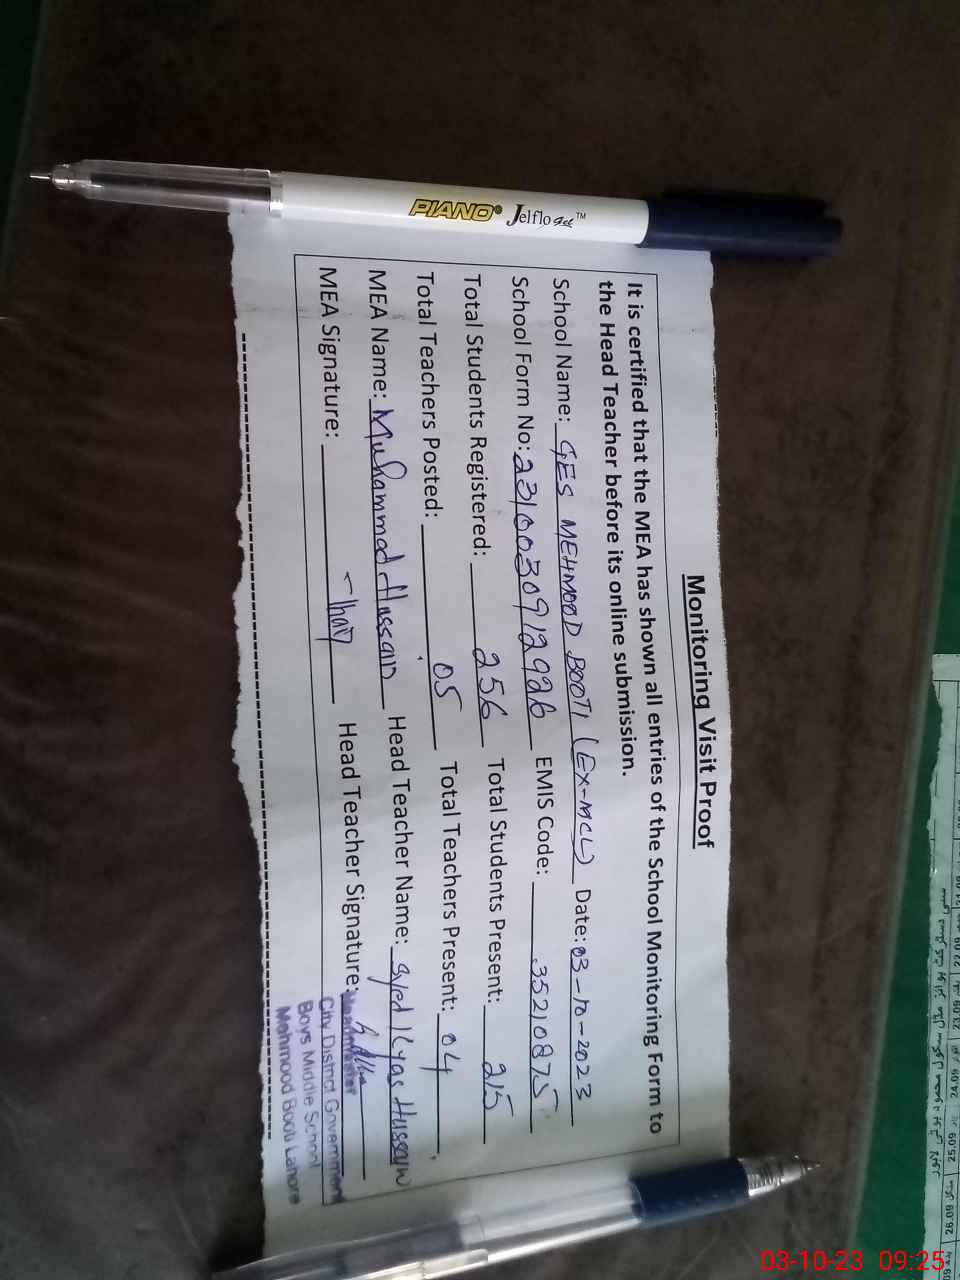 PIANO® Jelflo Gel™
Monitoring Visit Proof
It is certified that the MEA has shown all entries of the School Monitoring Form to
the Head Teacher before its online submission.
School Name: GES MEHMOOD BOOTI (EX-MCL) Date: 03-10-2023
School Form No: 2310030912926 EMIS Code: 35210875
Total Students Registered: 256 Total Students Present: 215
Total Teachers Posted: 05 Total Teachers Present: 04
MEA Name: Muhammad Hussain Head Teacher Name: Syed Ilyas Hussain
MEA Signature: Head Teacher Signature:
Headmaster
City District Government
Boys Middle School
Mahmood Booti Lahore
24.09
25.09
26.09
03-10-23 09:25